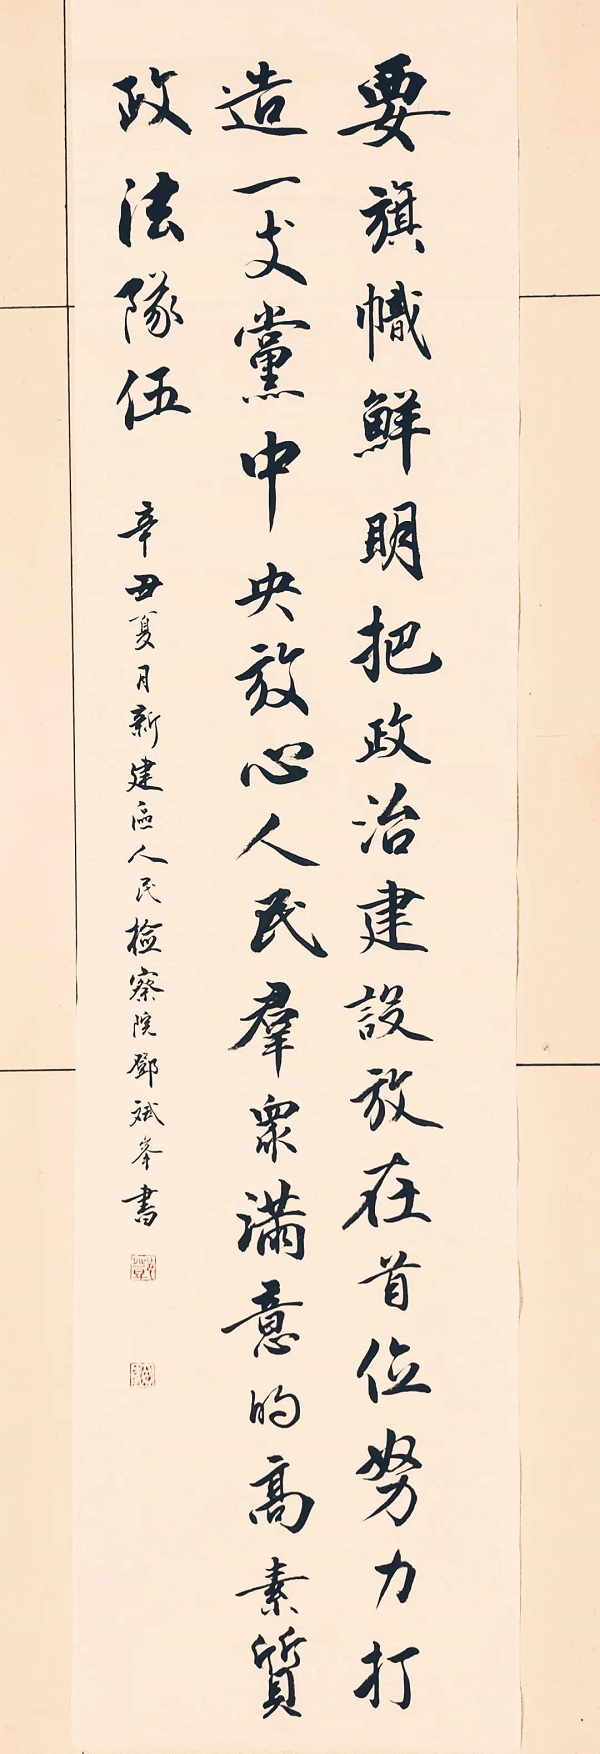 要旗幟鮮明把政治建設放在首位努力打
造一支黨中央放心人民羣衆滿意的高素質
政法隊伍
辛丑夏月新建區人民檢察院鄧斌峯書